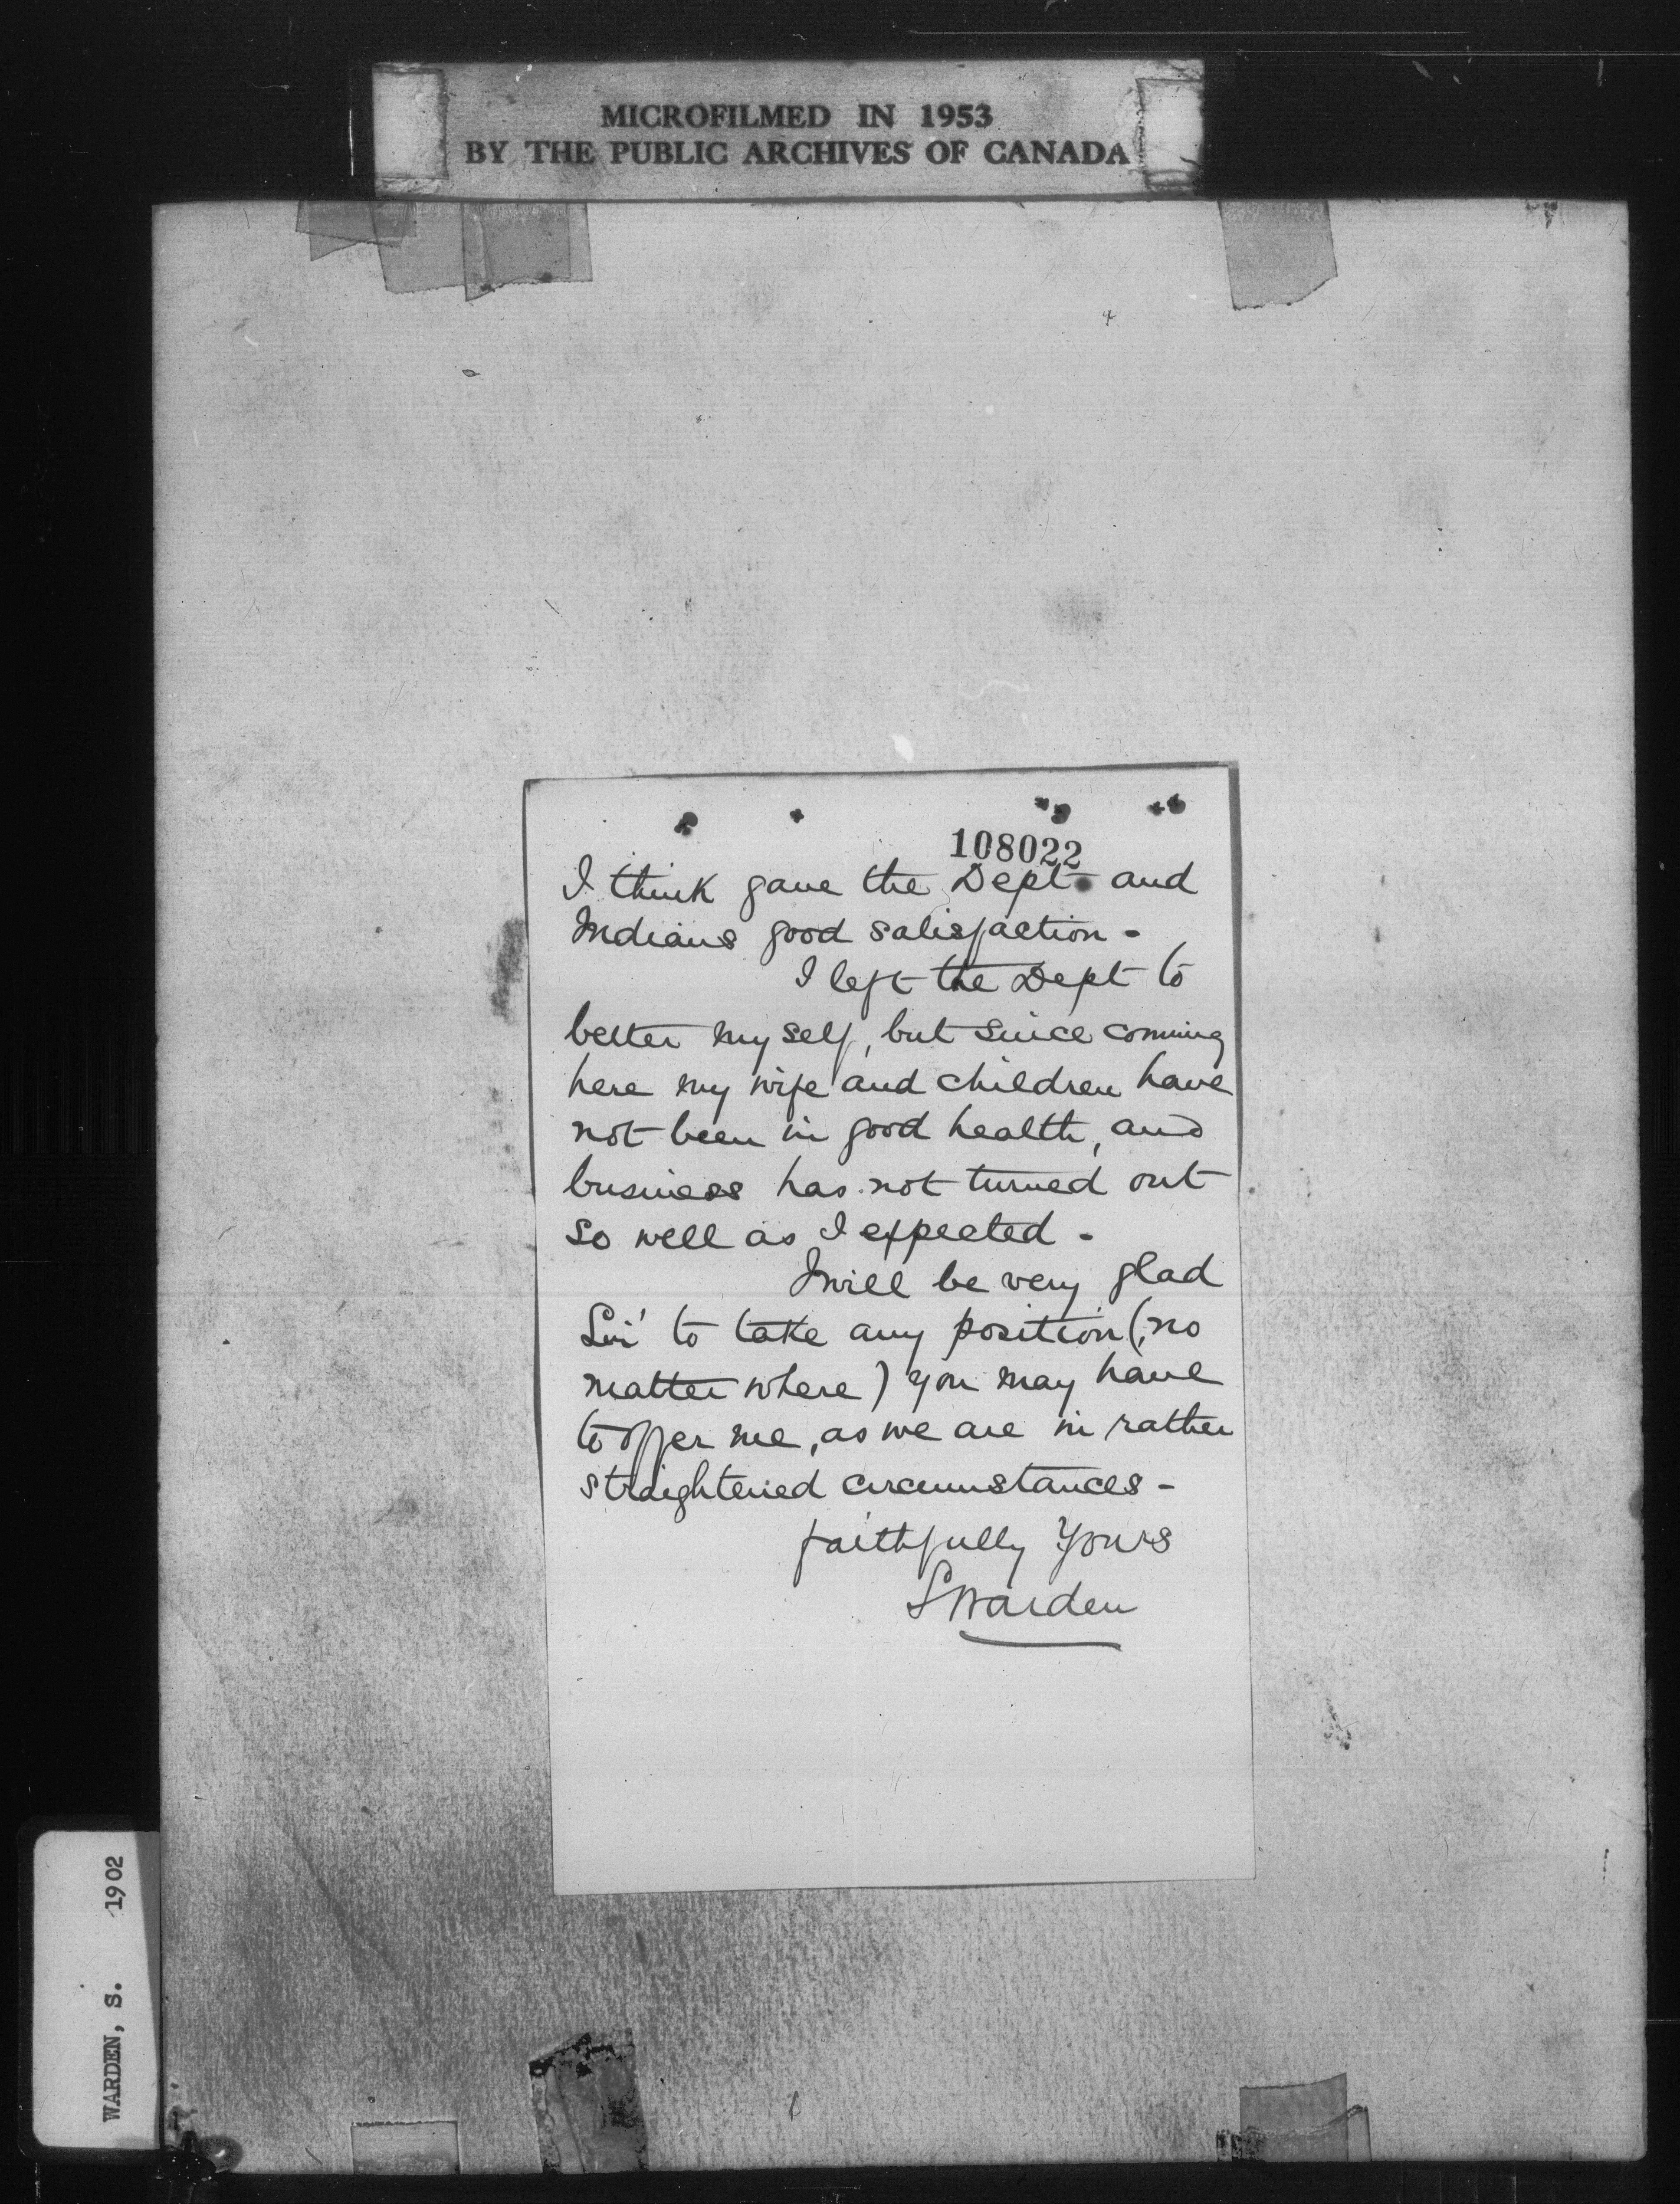 MICROFILMED IN 1953
BY THE PUBLIC ARCHIVES OF CANADA
108022
I think gave the Dept. and
Indians good satisfaction -
I left the Dept to
better myself, but since comming
here my wife and children have
not been in good health, and
business has not turned out
so well as I expected -
I will be very glad
Sir to take any position (no
matter where) you may have
to offer me, as we are in rather
straightened circumstances -
faithfully Yours
S Warden
WARDEN, S. 1902